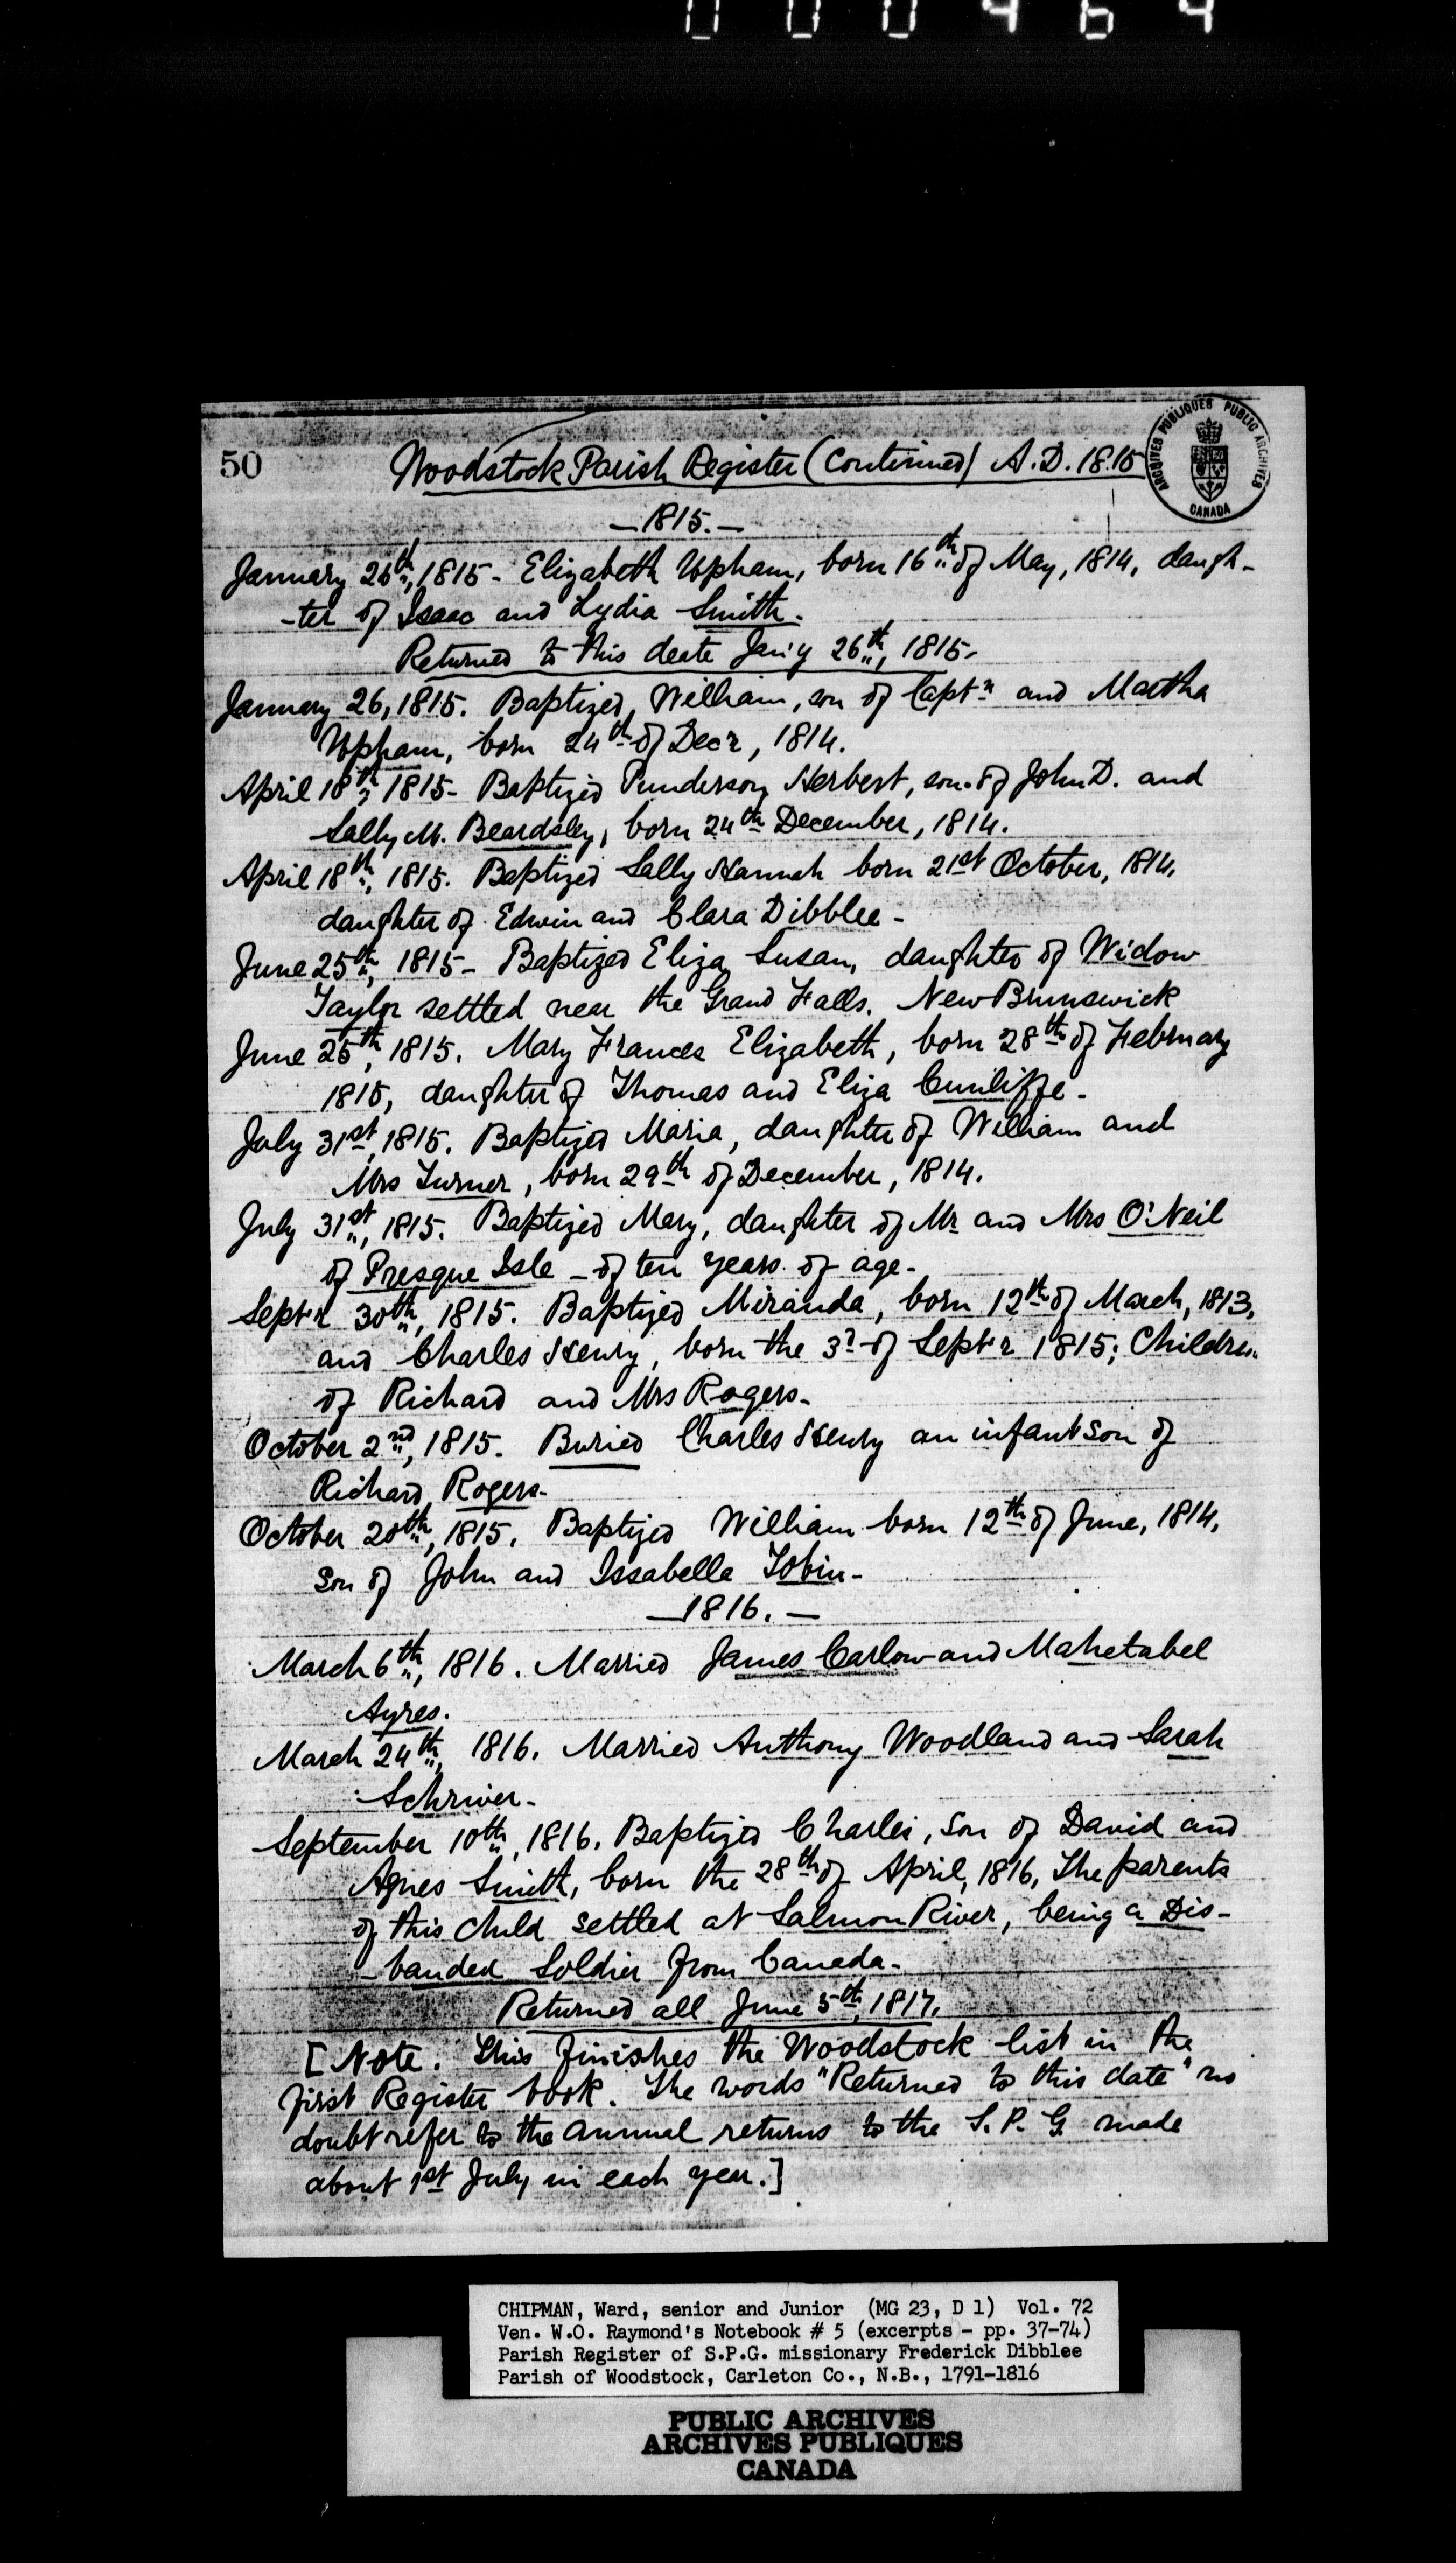 000464
50
Woodstock Parish Register (Continued) A.D. 1815
ARCHIVES PUBLIQUES PUBLIC ARCHIVES
CANADA
— 1815. —
January 26th, 1815 - Elizabeth Upham, born 16th of May, 1814, daugh-
-ter of Isaac and Lydia Smith.
Returned to this date Jan'y 26th, 1815.
January 26, 1815. Baptized, William, son of Captn and Martha
Upham, born 24th of Dec'r, 1814.
April 18th, 1815 - Baptized Punderson Herbert, son of John D. and
Sally M. Beardsley, born 24th December, 1814.
April 18th, 1815. Baptized Sally Hannah born 21st October, 1814,
daughter of Edwin and Clara Dibblee -
June 25th, 1815 - Baptized Eliza Susan, daughter of Widow
Taylor settled near the Grand Falls. New Brunswick
June 25th, 1815. Mary Frances Elizabeth, born 28th of February
1815, daughter of Thomas and Eliza Cunliffe -
July 31st, 1815. Baptized Maria, daughter of William and
Mrs Turner, born 29th of December, 1814.
July 31st, 1815. Baptized Mary, daughter of Mr and Mrs O'Neil
of Presque Isle - of ten years of age -
Sept'r 30th, 1815. Baptized Miranda, born 12th of March, 1813,
and Charles Henry, born the 3d of Sept'r 1815; Children
of Richard and Mrs Rogers -
October 2nd, 1815. Buried Charles Henry an infant son of
Richard Rogers -
October 20th, 1815. Baptized William born 12th of June, 1814,
son of John and Issabella Tobin -
— 1816. —
March 6th, 1816. Married James Carlow and Mahetabel
Ayres.
March 24th, 1816. Married Anthony Woodland and Sarah
Schriver -
September 10th, 1816. Baptized Charles, son of David and
Agnes Smith, born the 28th of April, 1816, The parents
of this child settled at Salmon River, being a Dis-
-banded Soldier from Canada -
Returned all June 5th, 1817.
[Note. This finishes the Woodstock list in the
first Register book. The words "Returned to this date" no
doubt refer to the annual returns to the S.P.G. made
about 1st July in each year.]
CHIPMAN, Ward, senior and Junior (MG 23, D 1) Vol. 72
Ven. W.O. Raymond's Notebook # 5 (excerpts - pp. 37-74)
Parish Register of S.P.G. missionary Frederick Dibblee
Parish of Woodstock, Carleton Co., N.B., 1791-1816
PUBLIC ARCHIVES
ARCHIVES PUBLIQUES
CANADA